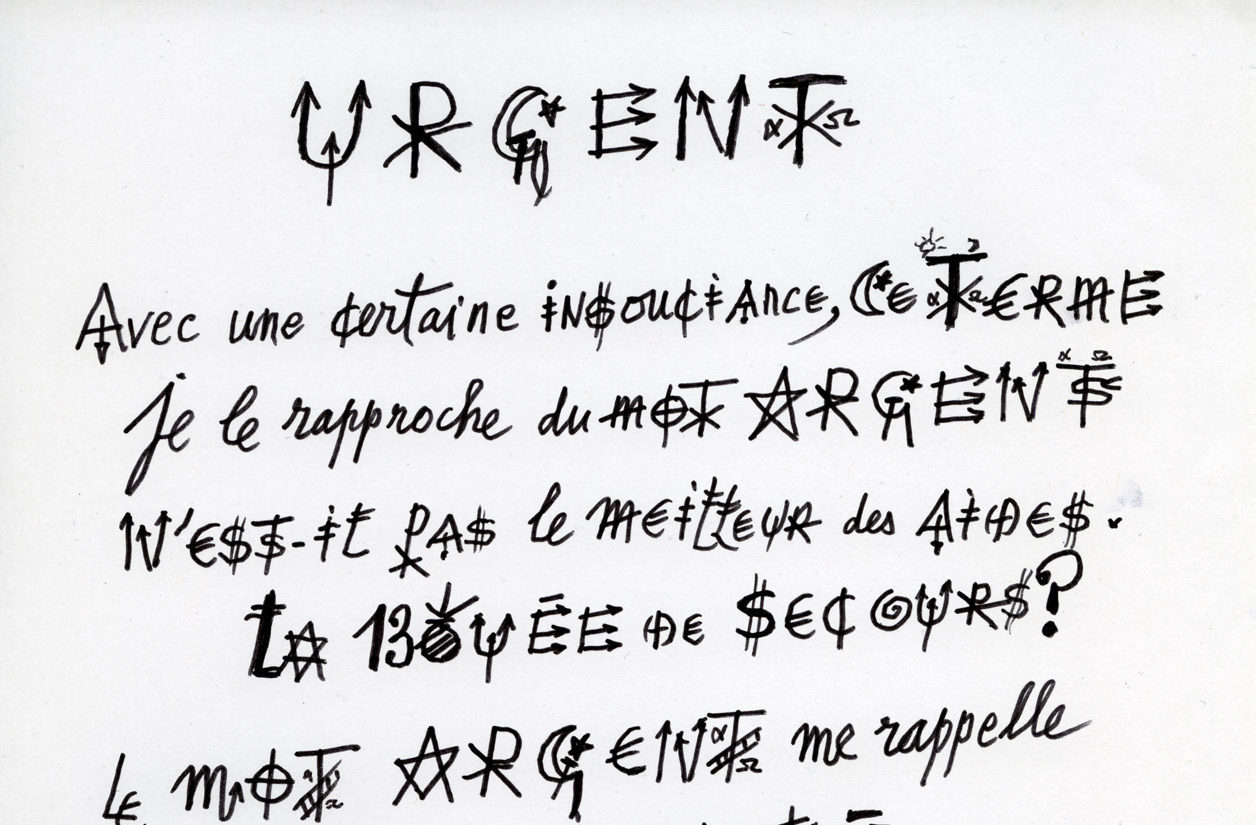 URGENT
Avec une certaine insouciance, CE TERME
je le rapproche du MOT ARGENT
N'EST-il PAS le MEILLEUR des AIDES.
LA BOUÉE DE SECOURS?
Le MOT ARGENT me rappelle